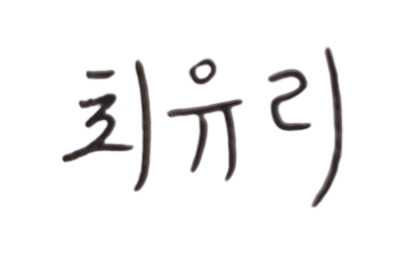 최유리